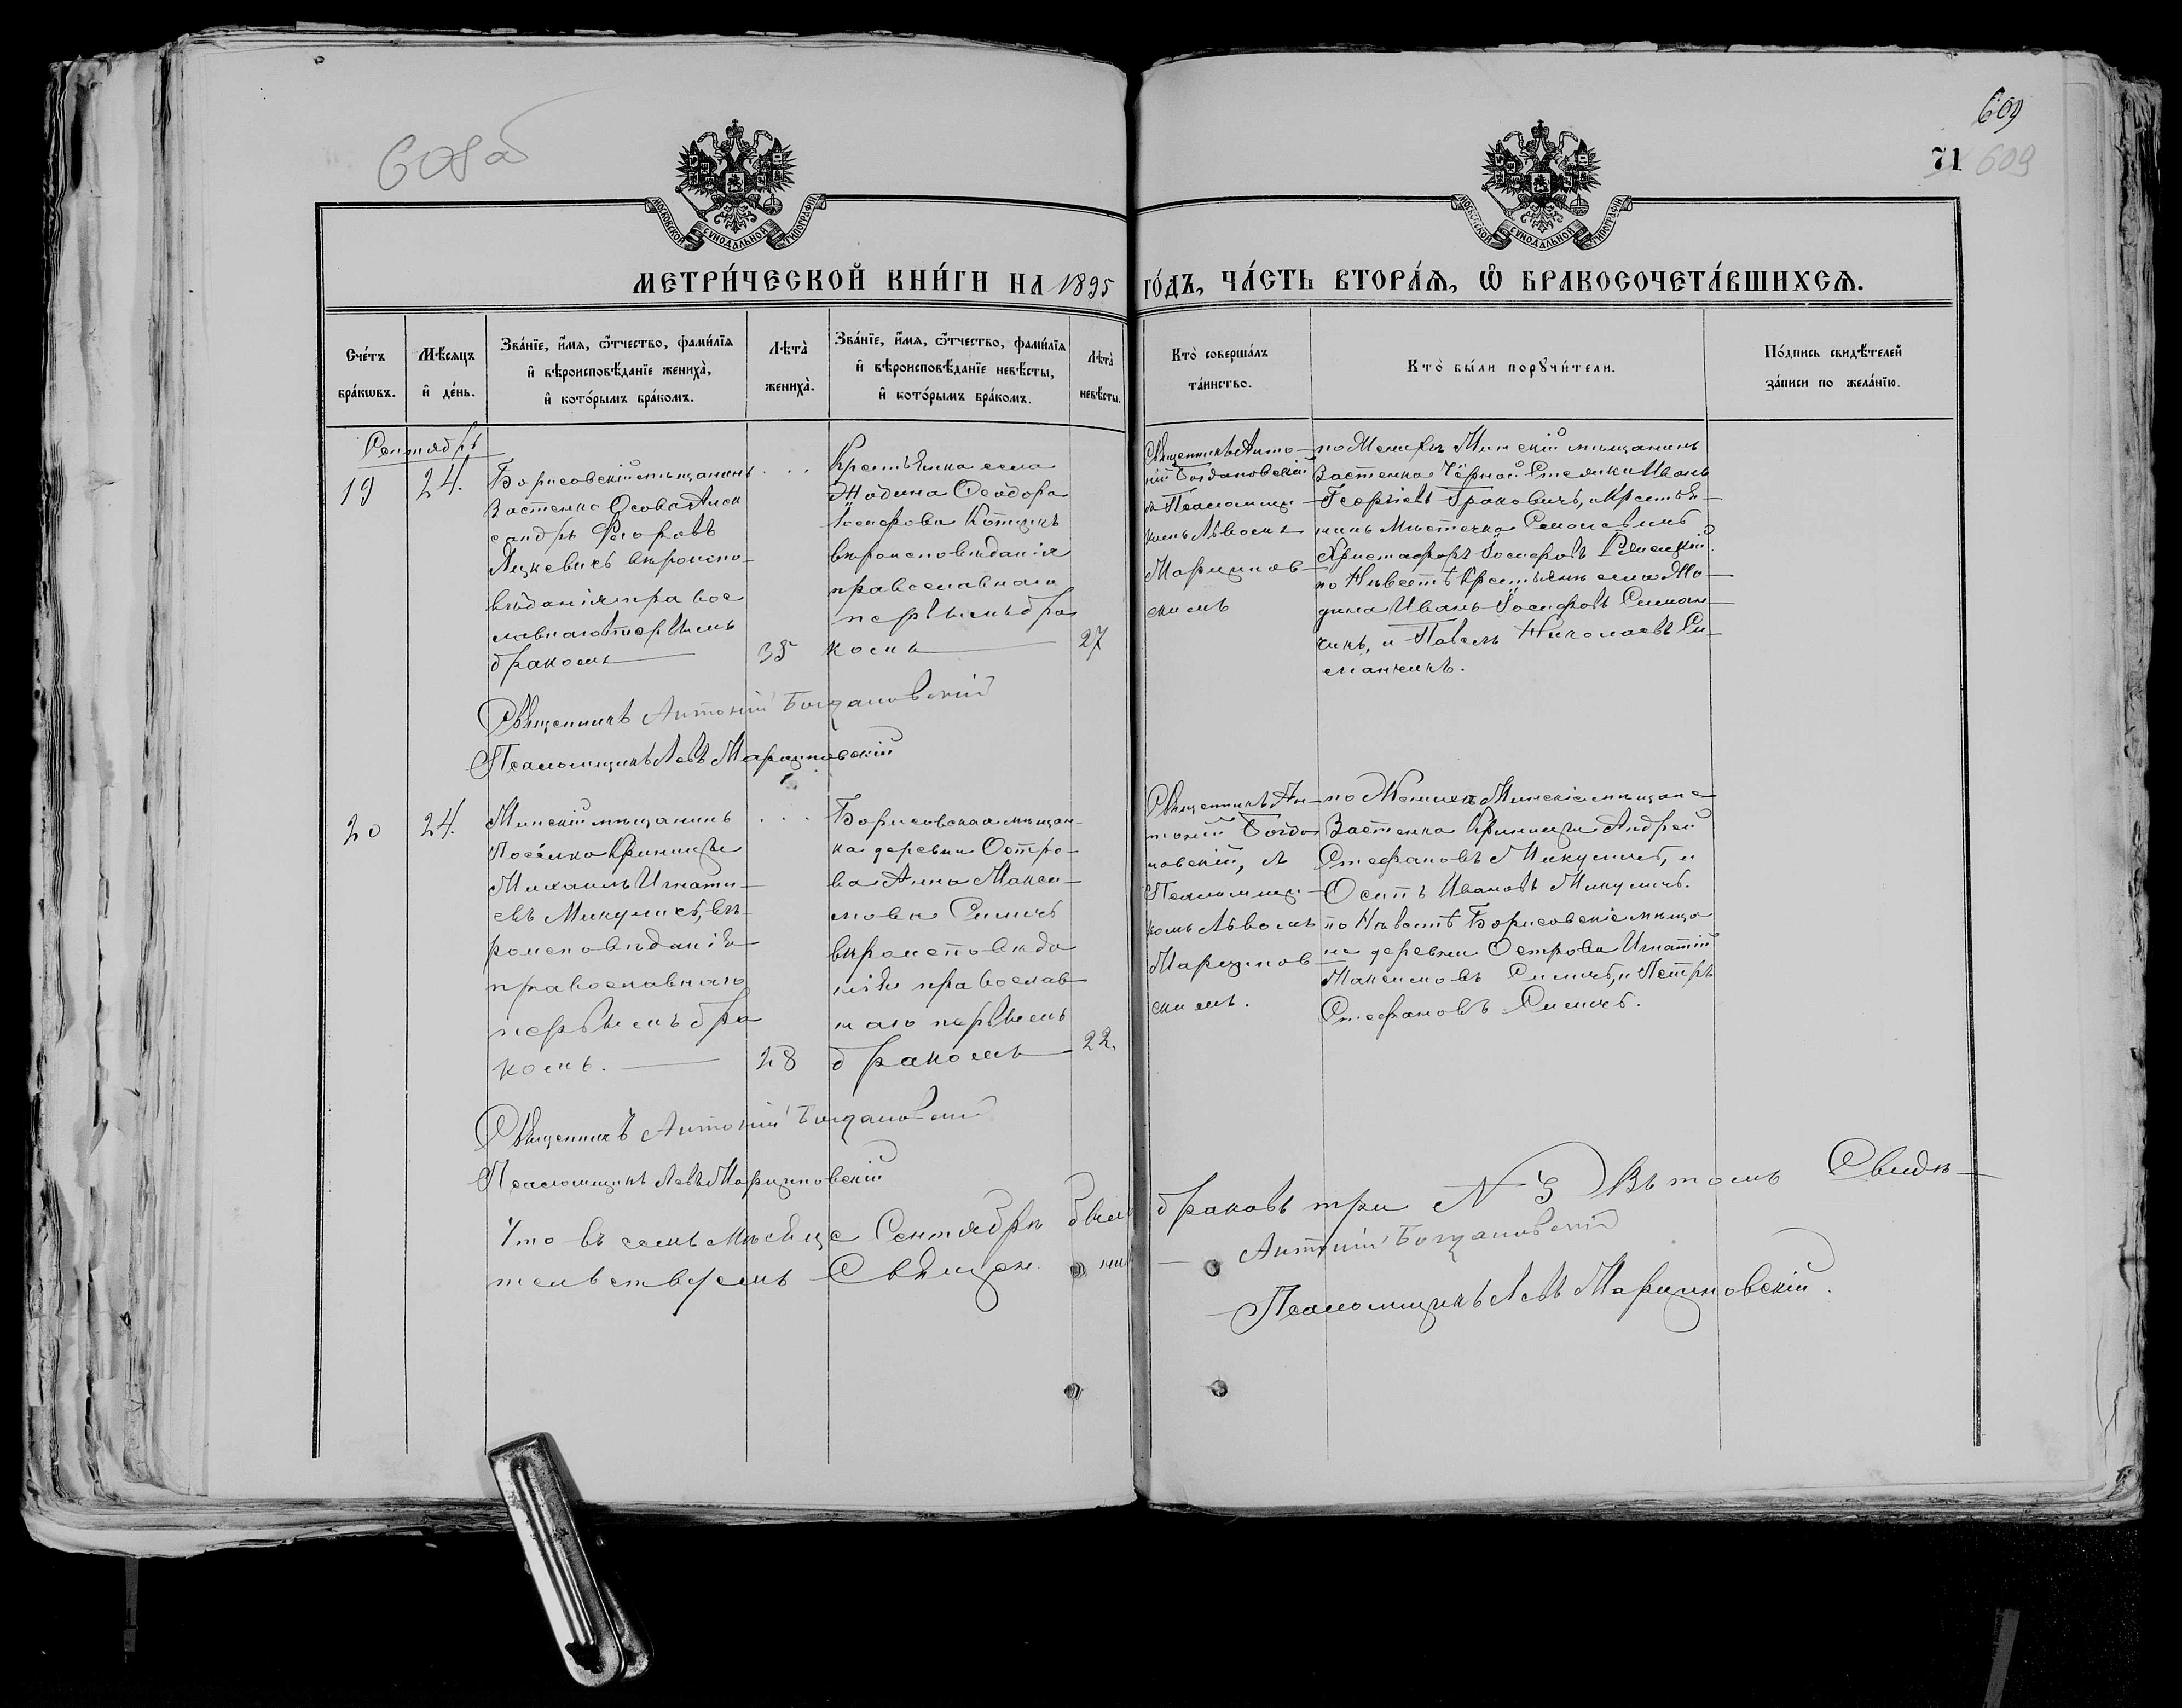 608об
609
71 609
МОСКОВСКОЙ СѴНОДАЛЬНОЙ ТИПОГРАФІИ
МОСКОВСКОЙ СѴНОДАЛЬНОЙ ТИПОГРАФІИ
МЕТРИ́ЧЕСКОЙ КНИ́ГИ НА 1895 ГО́ДЪ, ЧА́СТЬ ВТОРА́Я, Ѽ БРАКОСОЧЕТА́ВШИХСЯ.
Сче́тъ
бра́кѡвъ.
Мѣ́сяцъ
и҆ де́нь.
Зва́нїе, и҆́мя, ѻ҆́тчество, фами́лїя
и҆ вѣроисповѣ́данїе жениха̀,
и҆ кото́рымъ бра́комъ.
Лѣта̀
жениха̀.
Зва́нїе, и҆́мя, ѻ҆́тчество, фами́лїя
и҆ вѣроисповѣ́данїе невѣ́сты,
и҆ кото́рымъ бра́комъ.
Лѣта̀
невѣ́сты.
Кто̀ соверша́лъ
та́инство.
Кто̀ бы́ли порꙋчи́тели.
По́дпись свидѣ́телей
за́писи по жела́нїю.
Сентябрь
19
24.
Борисовскій мѣщанинъ
Застенка Осова Алек
сандръ Ѳеоровъ
Яцкевичъ вѣроиспо-
вѣданія право
славнаго первымъ
бракомъ
35
Крестьянка села
Жодина Ѳеодора
Іосифова Котикъ
вѣроисповѣданія
православнаго
первымъ бра
комъ
27
Священникъ Анто-
ній Богдановскій
съ Псаломщи-
комъ Львомъ
Марцинов-
скимъ
по Женихѣ Минскій мѣщанинъ
Застенка Чёрной Иванъ
Георгіевъ Гракович, и Крестья-
нинъ Мѣстечка
Христофоръ Іосифовъ
по Невѣстѣ Крестьяне села Жо-
дина Иванъ Іосифовъ Симан-
чикъ, и Павелъ Николаевъ Си-
манчикъ.
Священникъ Антоній Богдановскій
Псаломщикъ Левъ Марциновскій
20
24.
Минскій мѣщанинъ
Посёлка Криницы
Михаилъ Игнати-
евъ Микуличъ, вѣ-
роисповѣданія
православнаго
первымъ бра
комъ.
28
Борисовская мѣщан-
ка деревни Остро-
ва Анна Макси-
мова Силичъ
вѣроисповѣда
нія православ
наго первымъ
бракомъ
22.
Священникъ Ан-
тоній Богда
новскій, съ
Псаломщи-
комъ Львомъ
Марцинов-
скимъ.
по Женихѣ Минскіе мѣщане
Застенка Криницы Андрей
Стефановъ Микуличъ, и
Осипъ Ивановъ Микуличъ.
по Невѣстѣ Борисовскіе мѣща
не деревни Острова Игнатій
Максимовъ Силичъ, и Петръ
Стефановъ Силичъ.
Священникъ Антоній Богдановскій
Псаломщикъ Левъ Марциновскій
Что въ семъ мѣсяцѣ Сентябрѣ было браковъ три N 3 Въ томъ Свидѣ-
тельствуемъ Священникъ Антоній Богдановскій
Псаломщикъ Левъ Марциновскій.